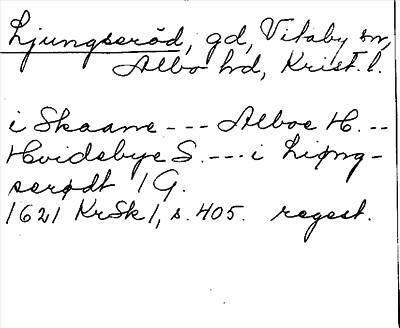 Ljungseröd, gd, Vitaby sn,
Albo hd, Krist. l.
i Skaane --- Alboe H. --
Hvidebye S. --- i Liøng-
serødt 1 G.
1621 KrSk 1, s. 405. regest.